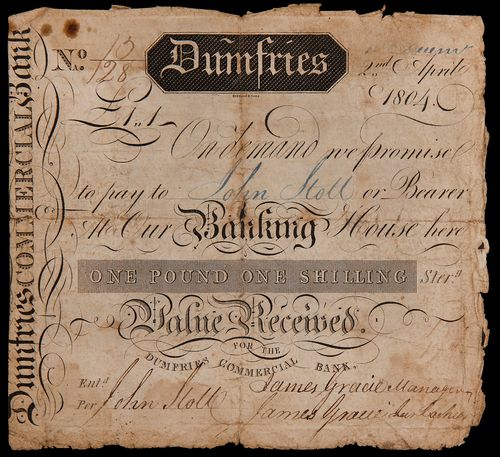 Dumfries COMMERCIAL Bank
No. 13/128
Dumfries
2nd April
1804.
£1,,1
On demand we promise
to pay to John Stott or Bearer
At Our Banking House here
ONE POUND ONE SHILLING Sterg
Value Received.
FOR THE
DUMFRIES COMMERCIAL BANK,
Entd
Per John Stott
James Gracie Manager
James Gracie